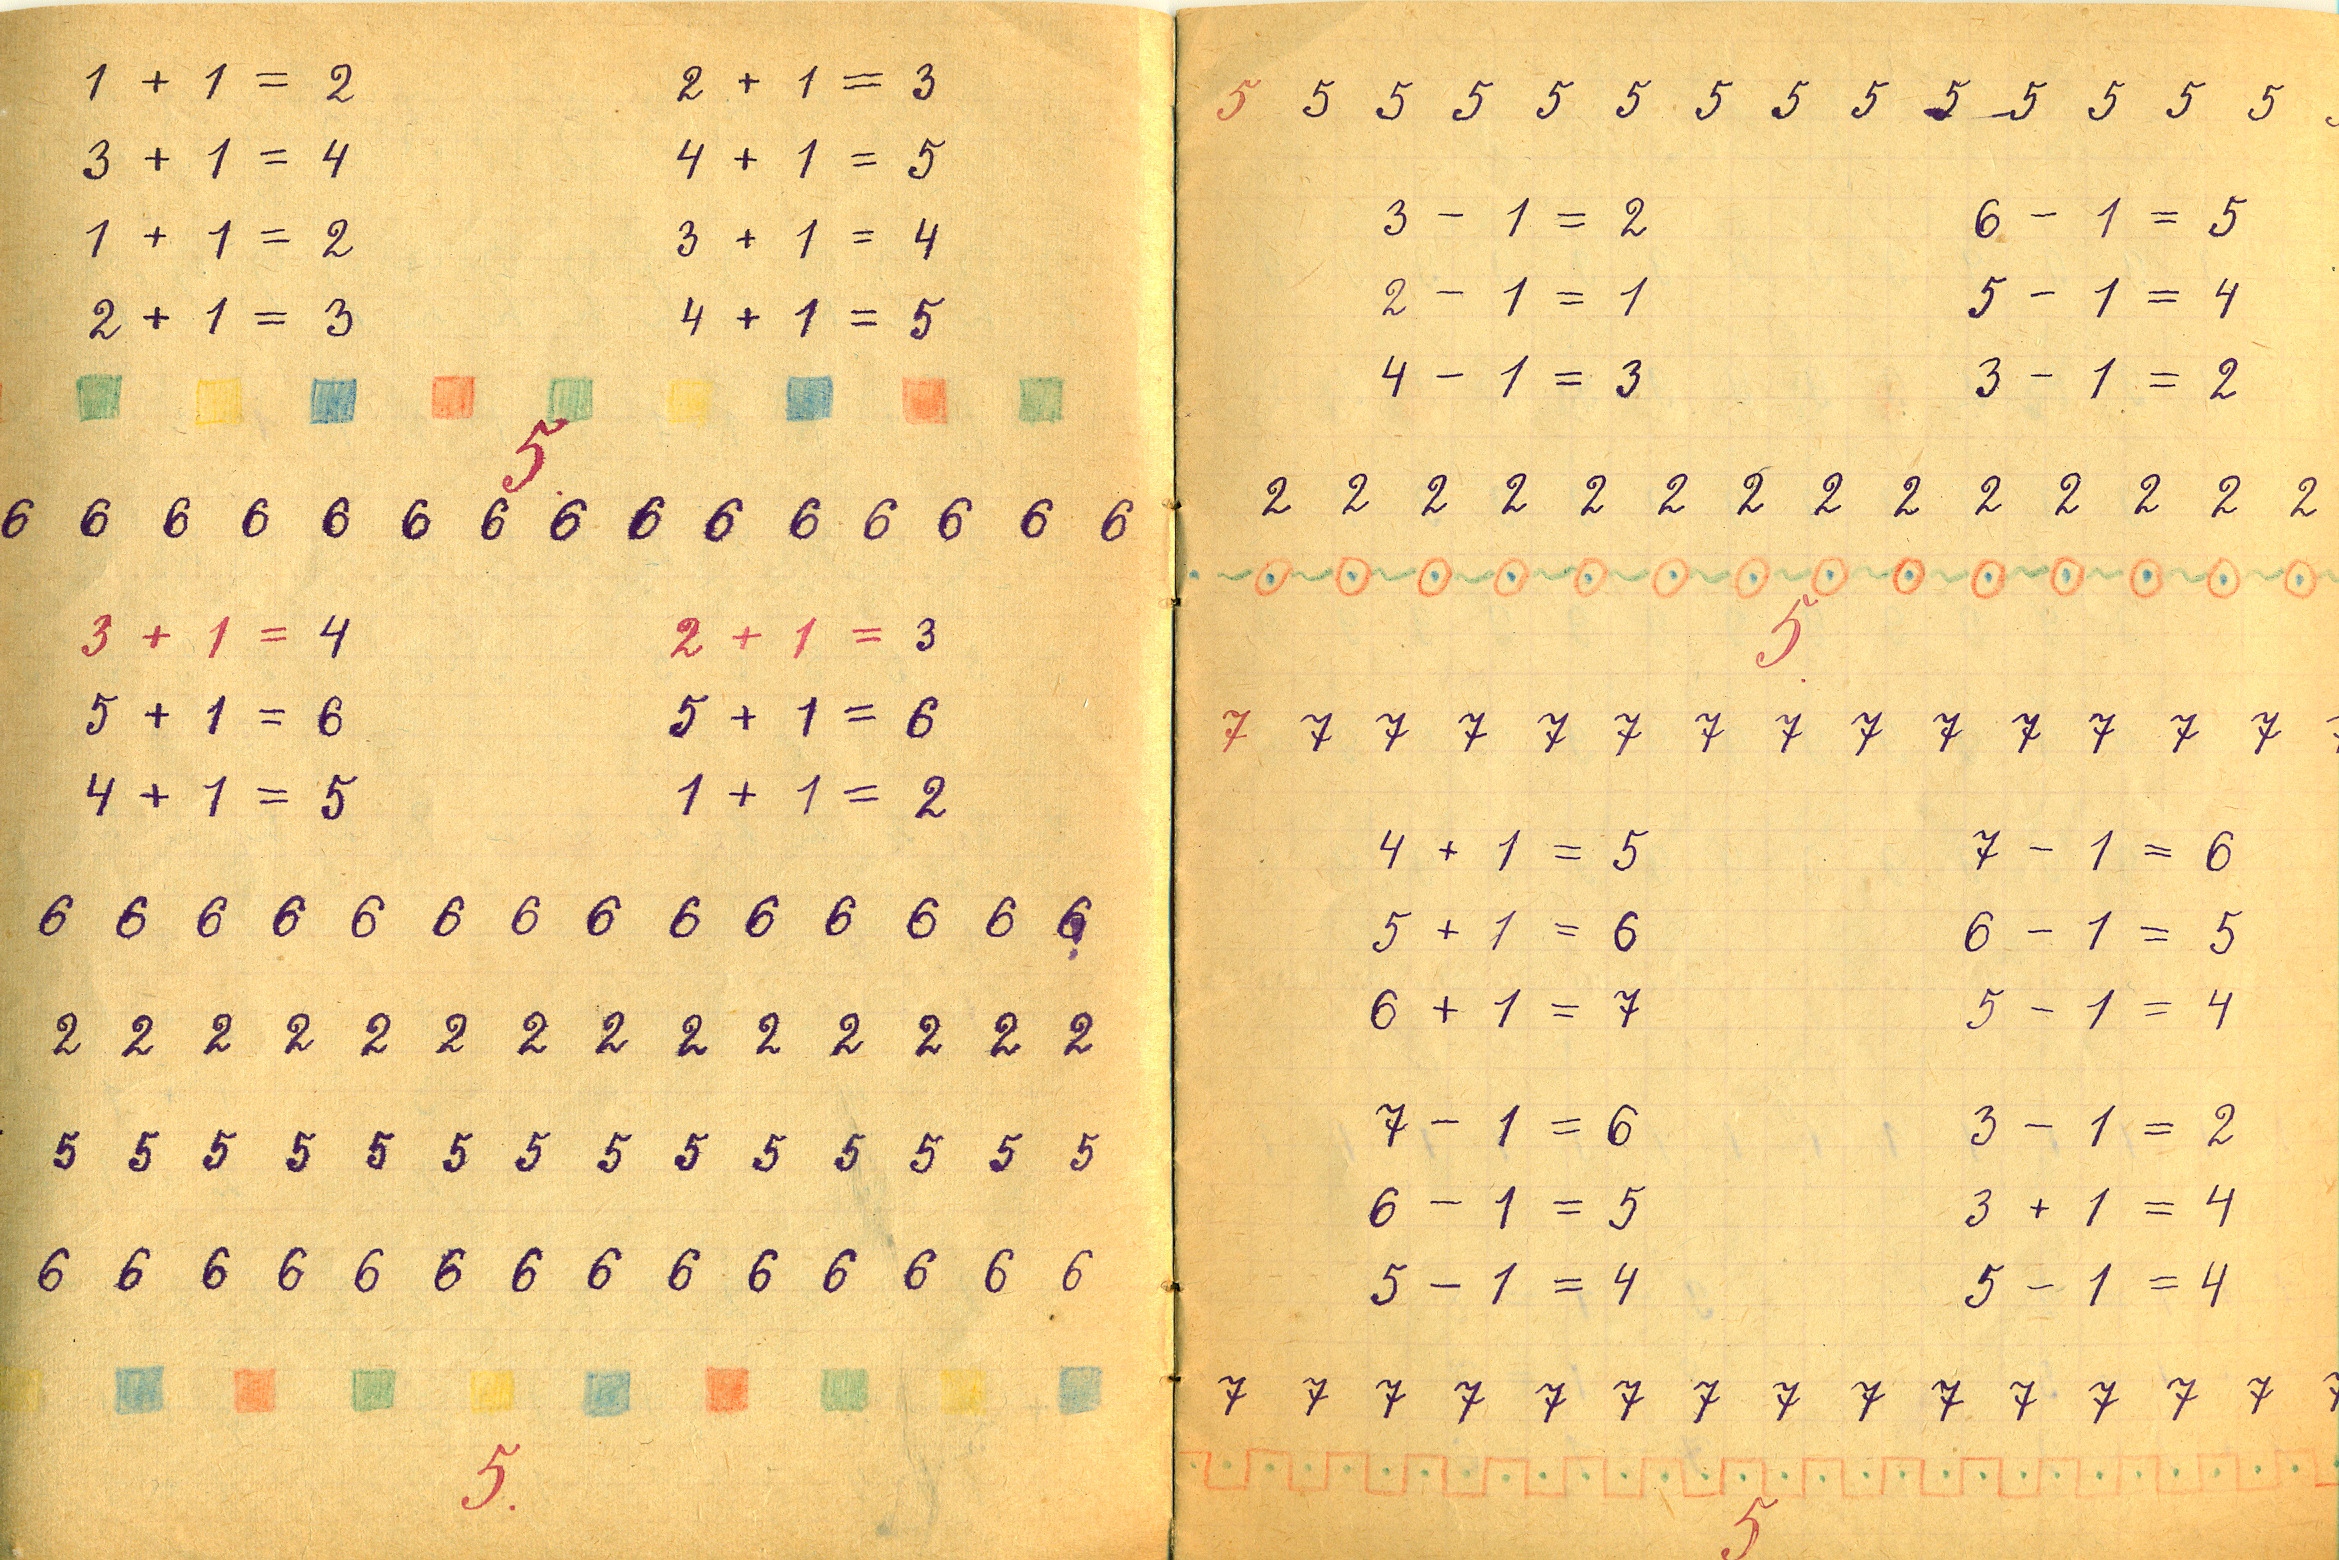 1 + 1 = 2 2 + 1 = 3
3 + 1 = 4 4 + 1 = 5
1 + 1 = 2 3 + 1 = 4
2 + 1 = 3 4 + 1 = 5
5.
6 6 6 6 6 6 6 6 6 6 6 6 6 6 6
3 + 1 = 4 2 + 1 = 3
5 + 1 = 6 5 + 1 = 6
4 + 1 = 5 1 + 1 = 2
6 6 6 6 6 6 6 6 6 6 6 6 6 6
2 2 2 2 2 2 2 2 2 2 2 2 2 2
5 5 5 5 5 5 5 5 5 5 5 5 5 5
6 6 6 6 6 6 6 6 6 6 6 6 6 6
5.
5 5 5 5 5 5 5 5 5 5 5 5 5 5
3 - 1 = 2 6 - 1 = 5
2 - 1 = 1 5 - 1 = 4
4 - 1 = 3 3 - 1 = 2
2 2 2 2 2 2 2 2 2 2 2 2 2 2
5.
7 7 7 7 7 7 7 7 7 7 7 7 7 7 7
4 + 1 = 5 7 - 1 = 6
5 + 1 = 6 6 - 1 = 5
6 + 1 = 7 5 - 1 = 4
7 - 1 = 6 3 - 1 = 2
6 - 1 = 5 3 + 1 = 4
5 - 1 = 4 5 - 1 = 4
7 7 7 7 7 7 7 7 7 7 7 7 7 7 7
5